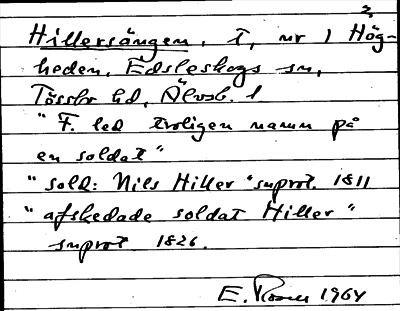 Hillersängen, t, nr 1 Hög-
heden, Edsleskogs sn,
Tössbo hd, Älvsb. l
"F. led troligen namn på
en soldat"
"sold: Nils Hiller" snprot. 1811
"afskedade soldat Hiller"
snprot 1826.
E. 1964